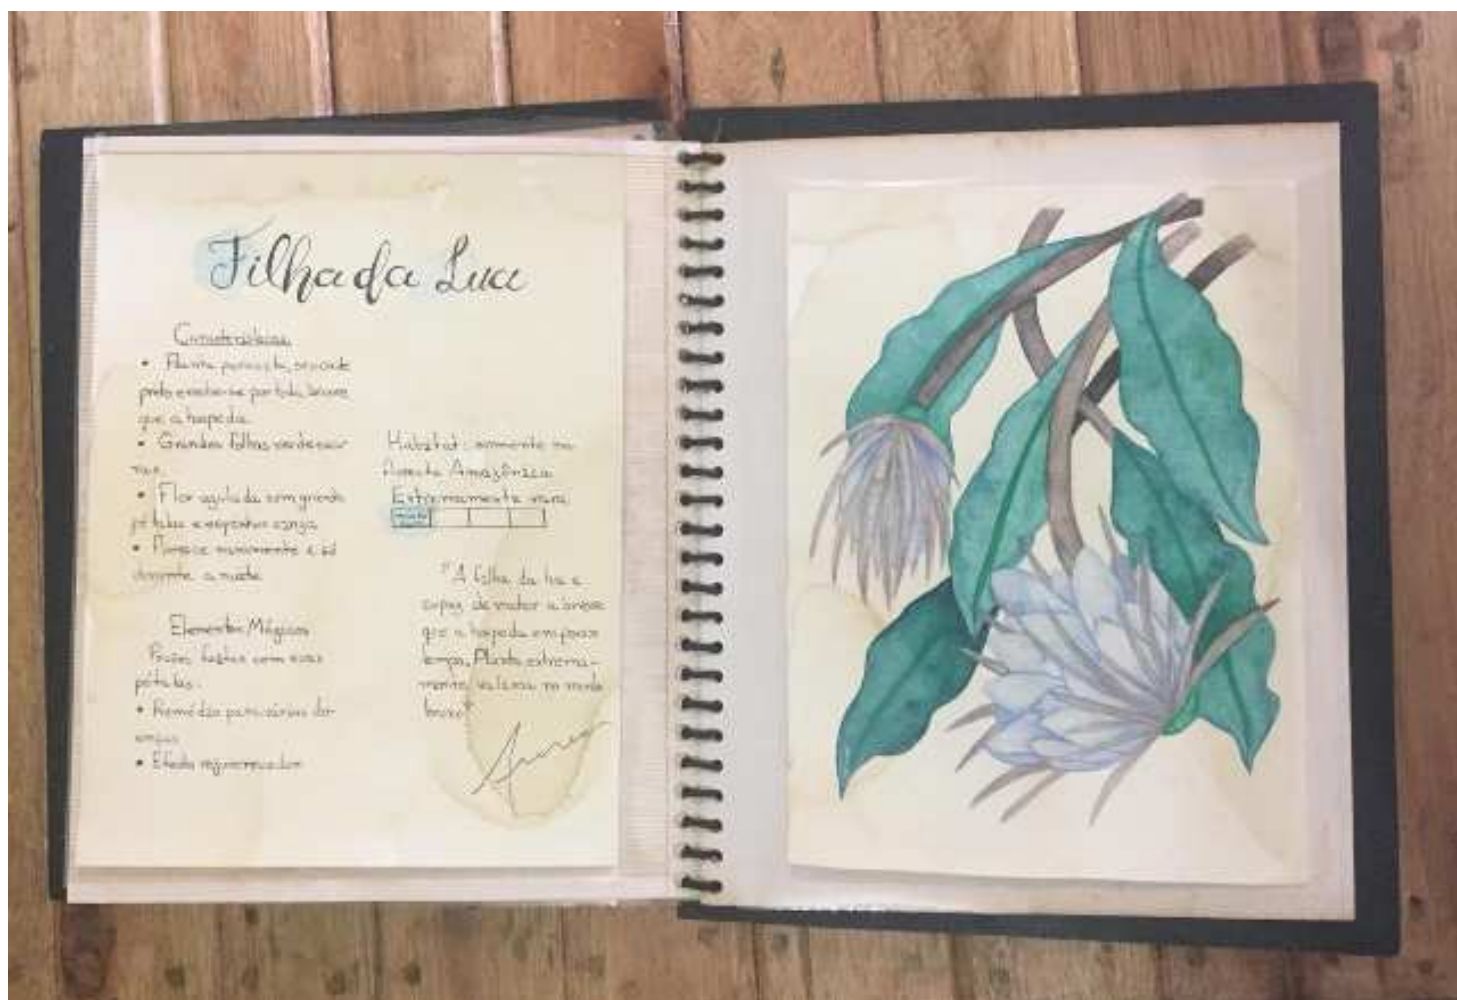 Filha da Lua
Características
• Planta parasita,
que a hospeda.
• Grandes folhas verde escu-
ras.
• Flor com grandes
pétalas e espinhos
• Floresce raramente e só
durante a noite
Elementos Mágicos
Poções feitas com suas
pétalas:
• Remédio para várias do-
enças
• Efeito rejuvenescedor
Habitat: somente na
Floresta Amazônica
Extremamente rara
"A filha da lua é
capaz de matar a árvore
que a hospeda em pouco
tempo. Planta extrema-
mente valiosa no mundo
bruxo"